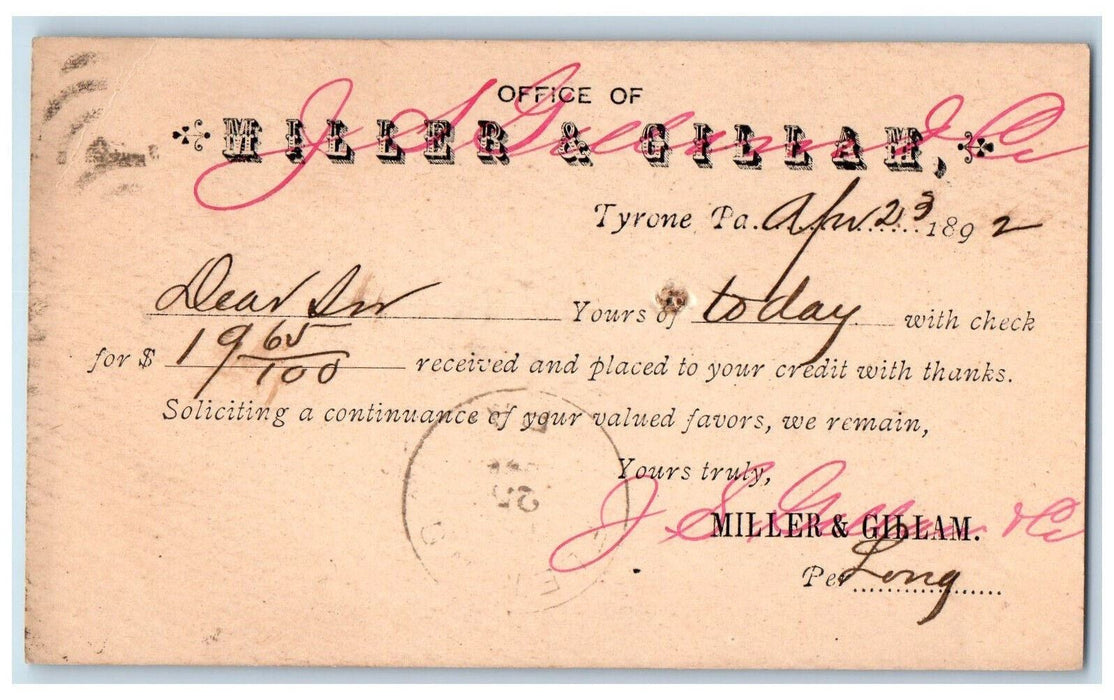 OFFICE OF
MILLER & GILLAM,
J S Gillam & Co
Tyrone, Pa. Apr 23 1892
Dear Sir Yours of today with check
for $ 19 65/100 received and placed to your credit with thanks.
Soliciting a continuance of your valued favors, we remain,
Yours truly,
MILLER & GILLAM.
J. S. Gillam & Co
Per Long